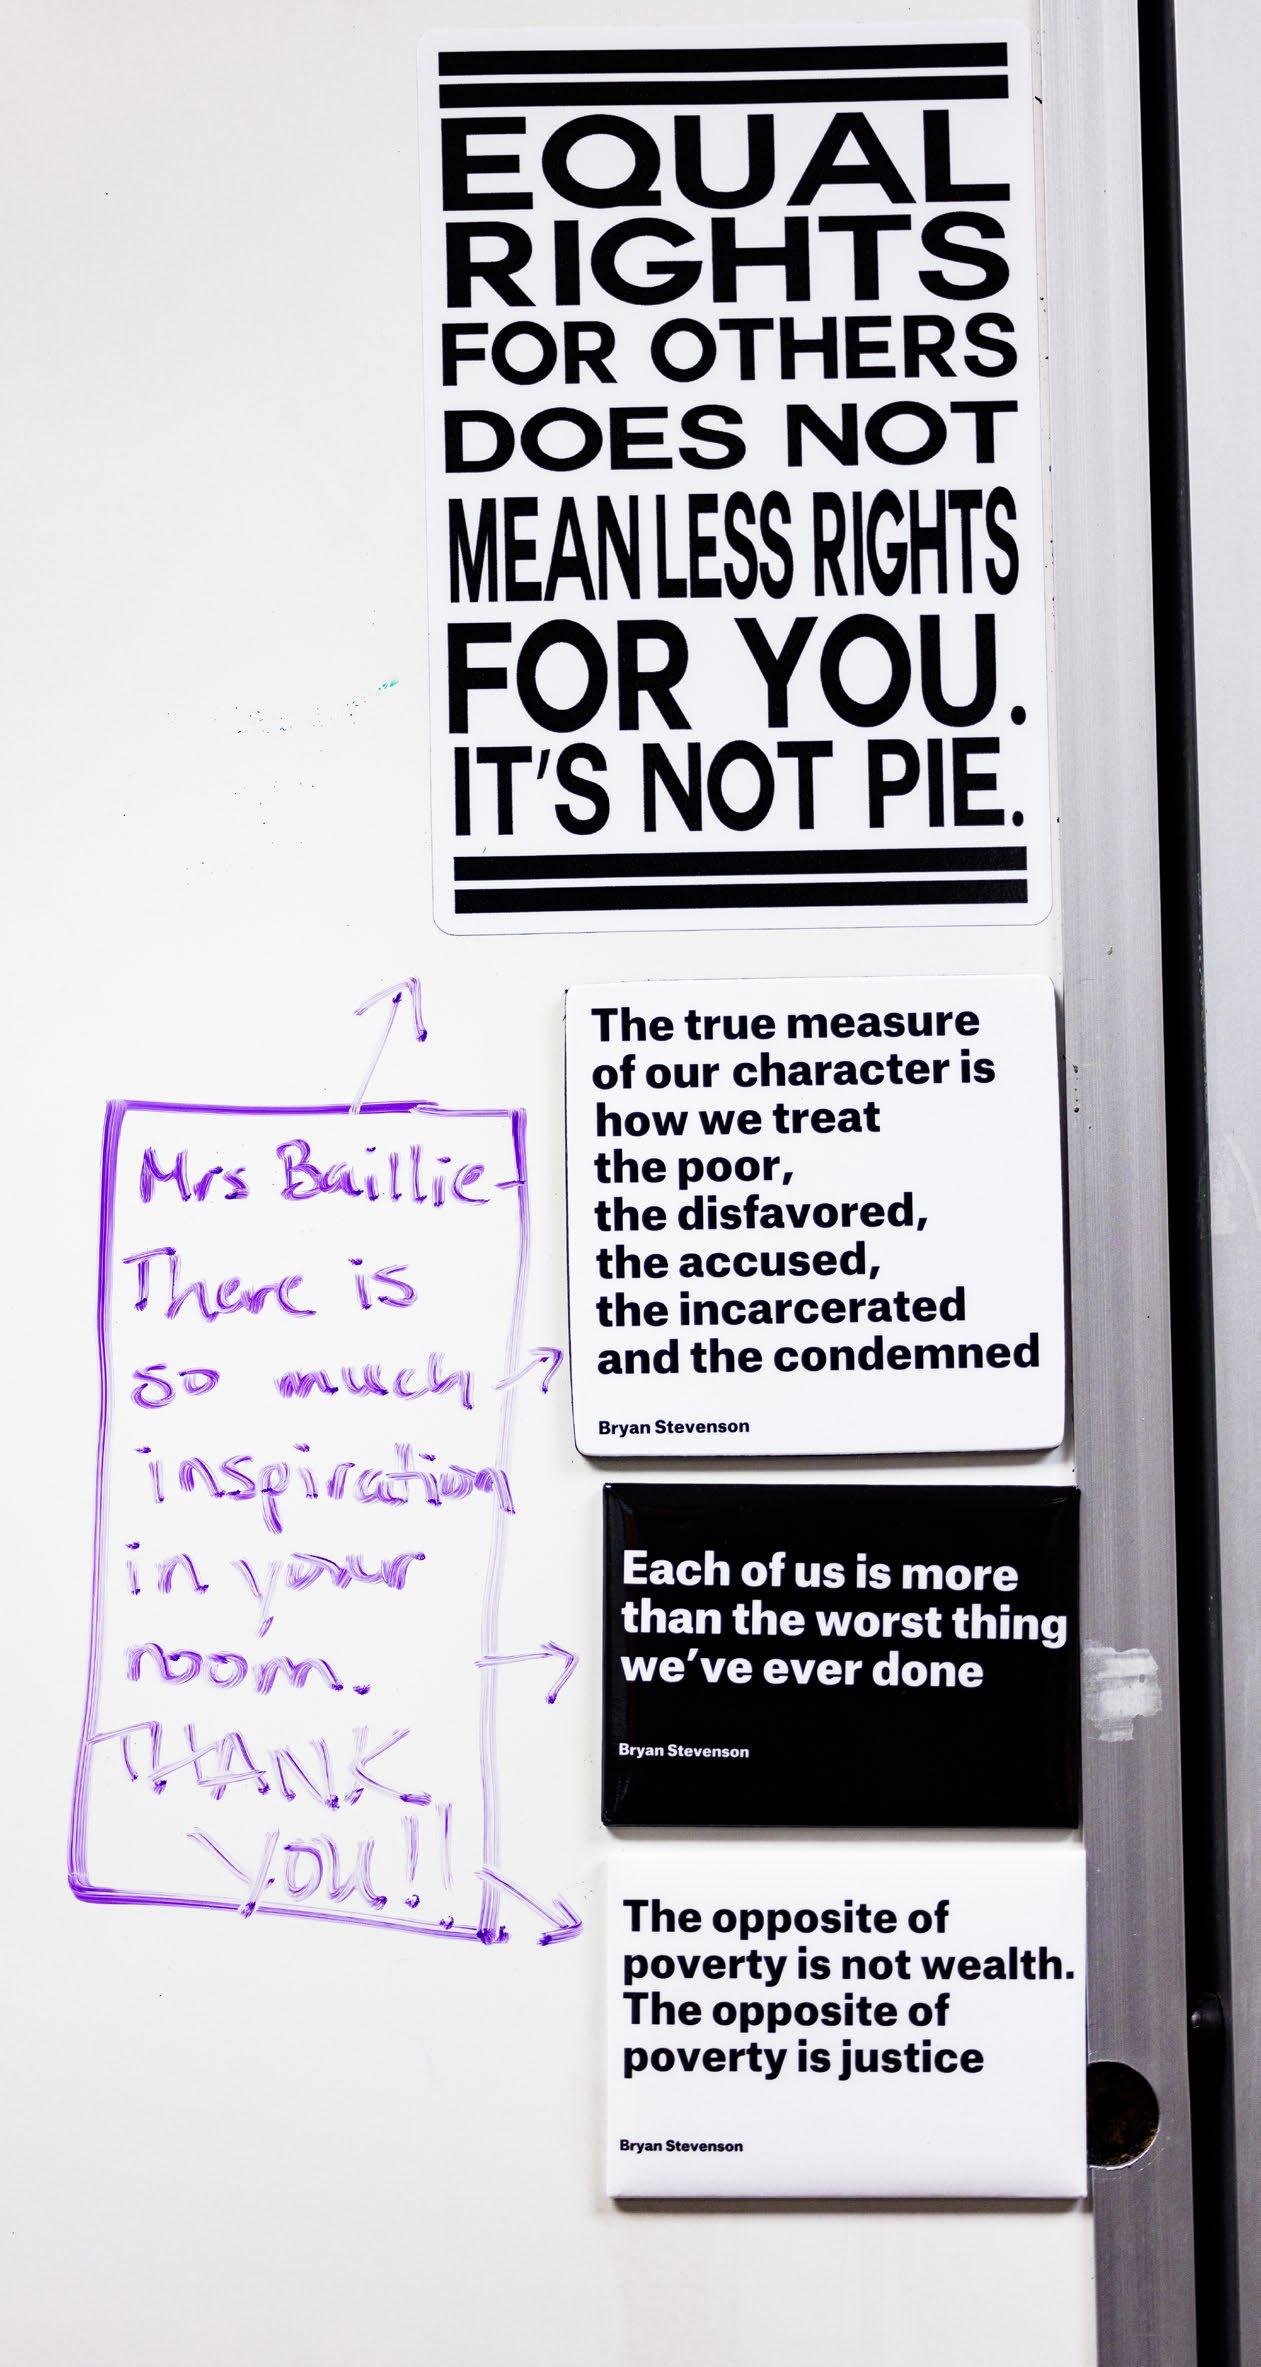 EQUAL
RIGHTS
FOR OTHERS
DOES NOT
MEAN LESS RIGHTS
FOR YOU.
IT'S NOT PIE.
The true measure
of our character is
how we treat
the poor,
the disfavored,
the accused,
the incarcerated
and the condemned
Bryan Stevenson
Each of us is more
than the worst thing
we've ever done
Bryan Stevenson
The opposite of
poverty is not wealth.
The opposite of
poverty is justice
Bryan Stevenson
Mrs Baillie-
There is
so much
inspiration
in your
room.
THANK
YOU!!